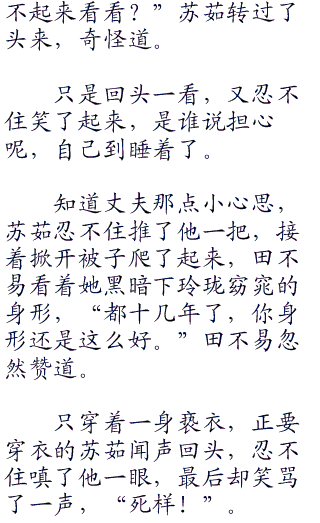 不起来看看？”苏茹转过了
头来，奇怪道。
只是回头一看，又忍不
住笑了起来，是谁说担心
呢，自己到睡着了。
知道丈夫那点小心思，
苏茹忍不住推了他一把，接
着掀开被子爬了起来，田不
易看着她黑暗下玲珑窈窕的
身形，“都十几年了，你身
形还是这么好。”田不易忽
然赞道。
只穿着一身亵衣，正要
穿衣的苏茹闻声回头，忍不
住嗔了他一眼，最后却笑骂
了一声，“死样！”。